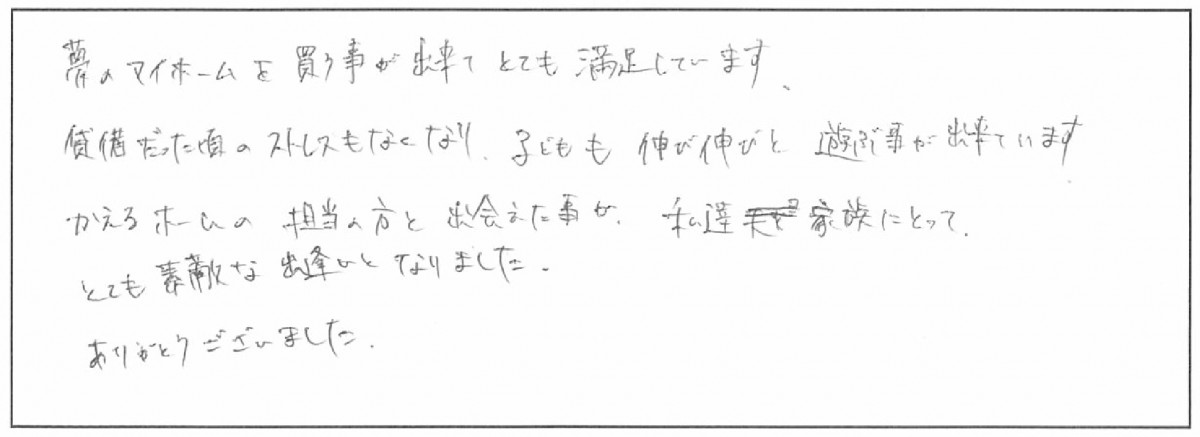 夢のマイホームを買う事が出来てとても満足しています、
賃借だった頃のストレスもなくなり、子どもも伸び伸びと遊ぶ事が出来ています
かえるホームの担当の方と出会えた事が、私達家族にとって、
とても素敵な出逢いとなりました。
ありがとうございました。